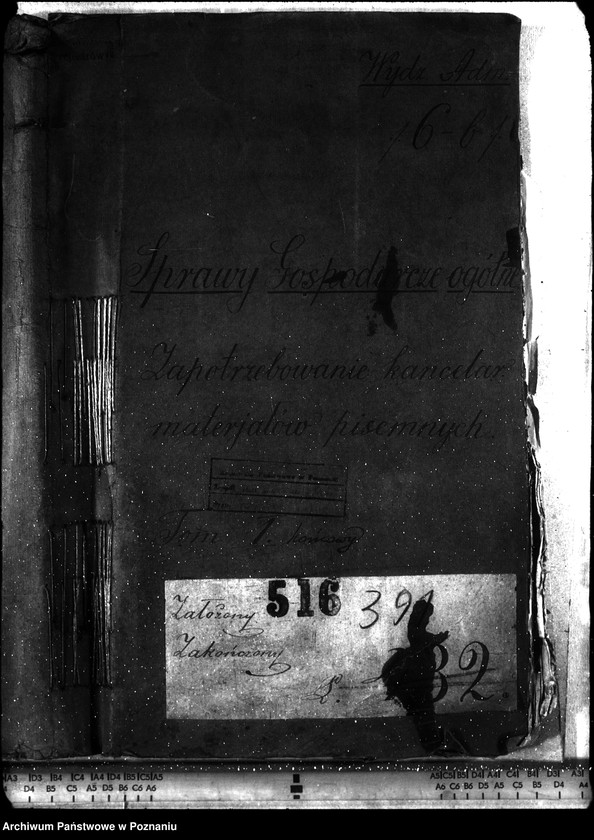 Wydz Adm
16-6/
Sprawy Gospodarcze ogóln
Zapotrzebowanie kancelar
materjałów pisemnych.
Tom 1.
Założony 516 391
Zakończony
32.
A3 D3 B4 C4 A4 D4 B5 C5 A5
D4 B5 C5 A5 D5 B6 C6 A6
A5 C5 B5 D4 A4 C4 B4 D3 A3
A6 C6 B6 D5 A5 C5 B5 D4 A4
Archiwum Państwowe w Poznaniu